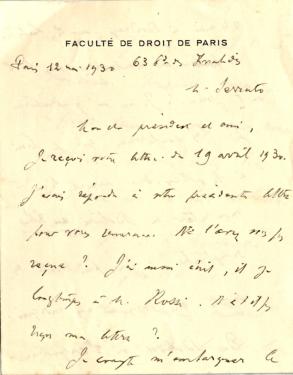 FACULTÉ DE DROIT DE PARIS
Paris 12 mai 1930 63 Bd des Invalides
Mon cher président et ami,
Je reçois votre lettre du 19 avril 1930.
J'avais répondu à votre précédente lettre
pour vous remercier. Ne l'avez vous pas
reçue ? J'ai aussi écrit, il y a
longtemps à M. Rossi. N'a t il pas
reçu ma lettre ?
Je compte m'embarquer le